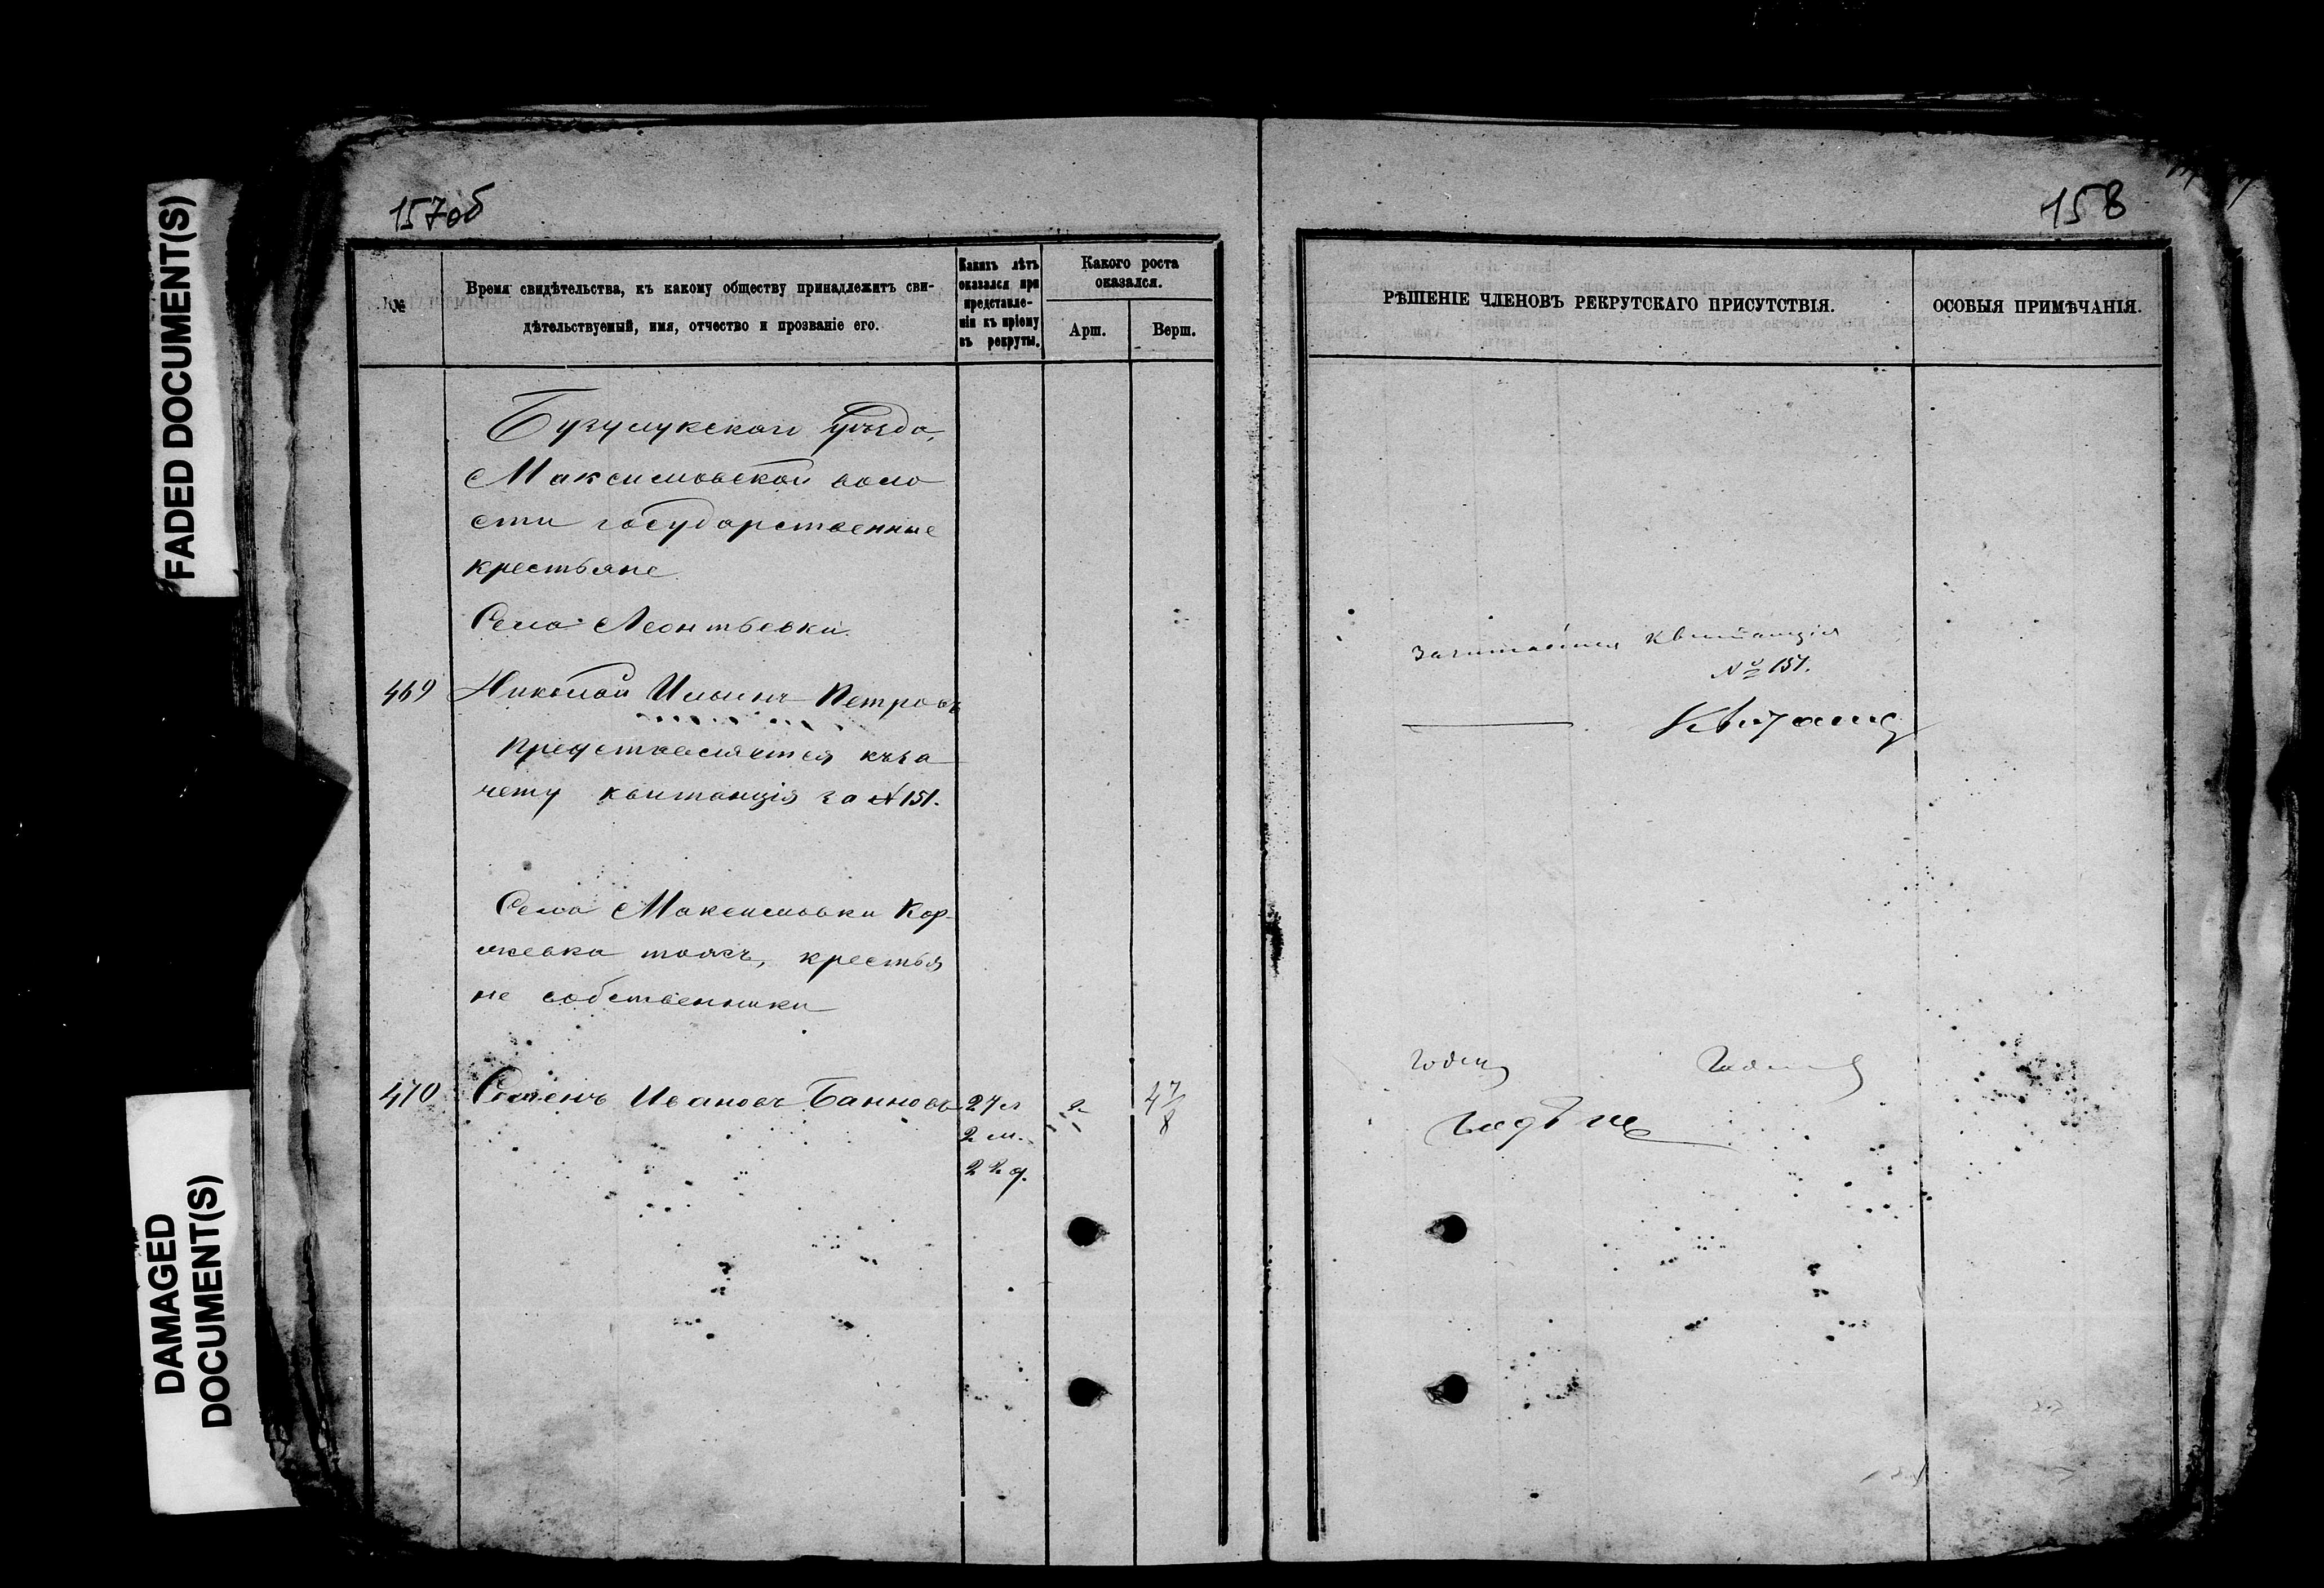 FADED DOCUMENT(S)
DAMAGED
DOCUMENT(S)
157об
№
Время свидѣтельства, къ какому обществу принадлежитъ сви-
дѣтельствуемый, имя, отчество и прозваніе его.
Какихъ лѣтъ
оказался при
представле-
ніи къ пріему
въ рекруты.
Какого роста
оказался.
Арш.
Верш.
Бузулукскаго уѣзда,
Максимовской воло
сти государственные
крестьяне
Села Леонтьевки.
469 Николай Ильинъ Петровъ
Представляется къ за
чету квитанція за № 151.
Села Максимовки Кор-
жевка тожъ, крестья
не собственники
470 Семенъ Ивановъ Банновъ 24 л 2 4 7/8
2 м.
22 д.
158
РѢШЕНІЕ ЧЛЕНОВЪ РЕКРУТСКАГО ПРИСУТСТВІЯ.
ОСОБЫЯ ПРИМѢЧАНІЯ.
Зачитается квитанція
№ 151.
Годенъ